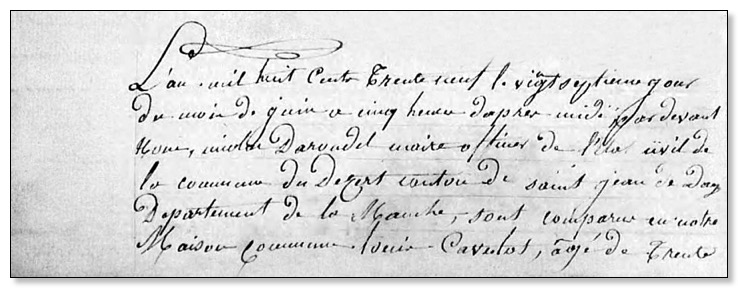 L'an mil huit cents trente neuf le vigtseptieme jour
du mois de juin a cinq heures dapres midi par devant
Nous, nicolas Daroudel maire officier de l'Etat civil de
la commune du Dezert canton de saint jean de Day
Departement de la Manche, sont comparus en notre
Maison Commune louis Cavelot, âgé de Trente